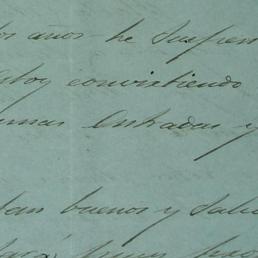 os años he suspen
estoy convirtiendo
unas entradas y
tan buenos y salu